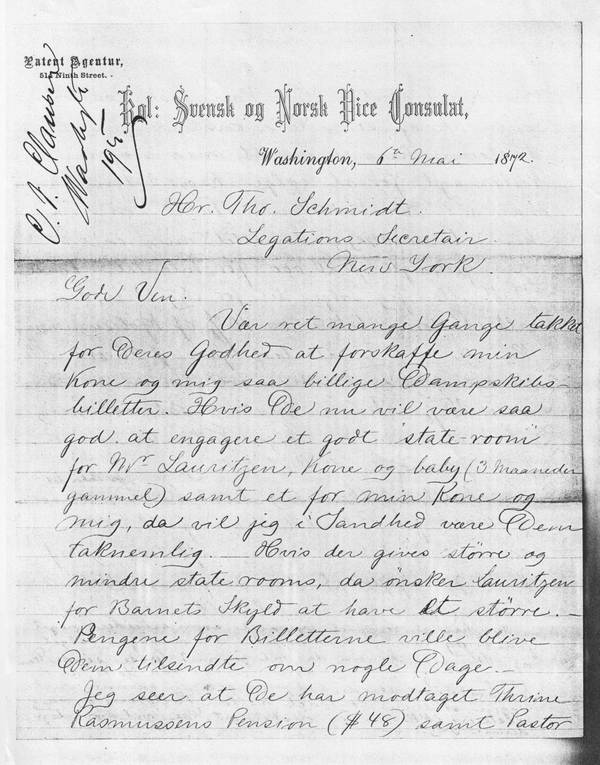 Patent Agentur,
513 Ninth Street.
Kgl: Svensk og Norsk Vice Consulat,
Washington, 6th Mai 1872.
C. A.
Washgtn
Hr. Tho. Schmidt.
Legations Secretair.
New York.
Gode Ven.
Vær ret mange Gange takket
for Deres Godhed at forskaffe min
Kone og mig saa billige Dampskibs-
billetter. Hvis De nu vil være saa
god at engagere et godt "state-room"
for Mr Lauritzen, Kone og baby (3 Maaneder
gammel) samt et for min Kone og
mig, da vil jeg i Sandhed være Dem
taknemlig. — Hvis der gives större og
mindre state rooms, da ønsker Lauritzen
for Barnets Skyld at have et större. —
Pengene for Billetterne ville blive
Dem tilsendte om nogle Dage. —
Jeg seer at De har modtaget Thrine
Rasmussens Pension ($48) samt Pastor